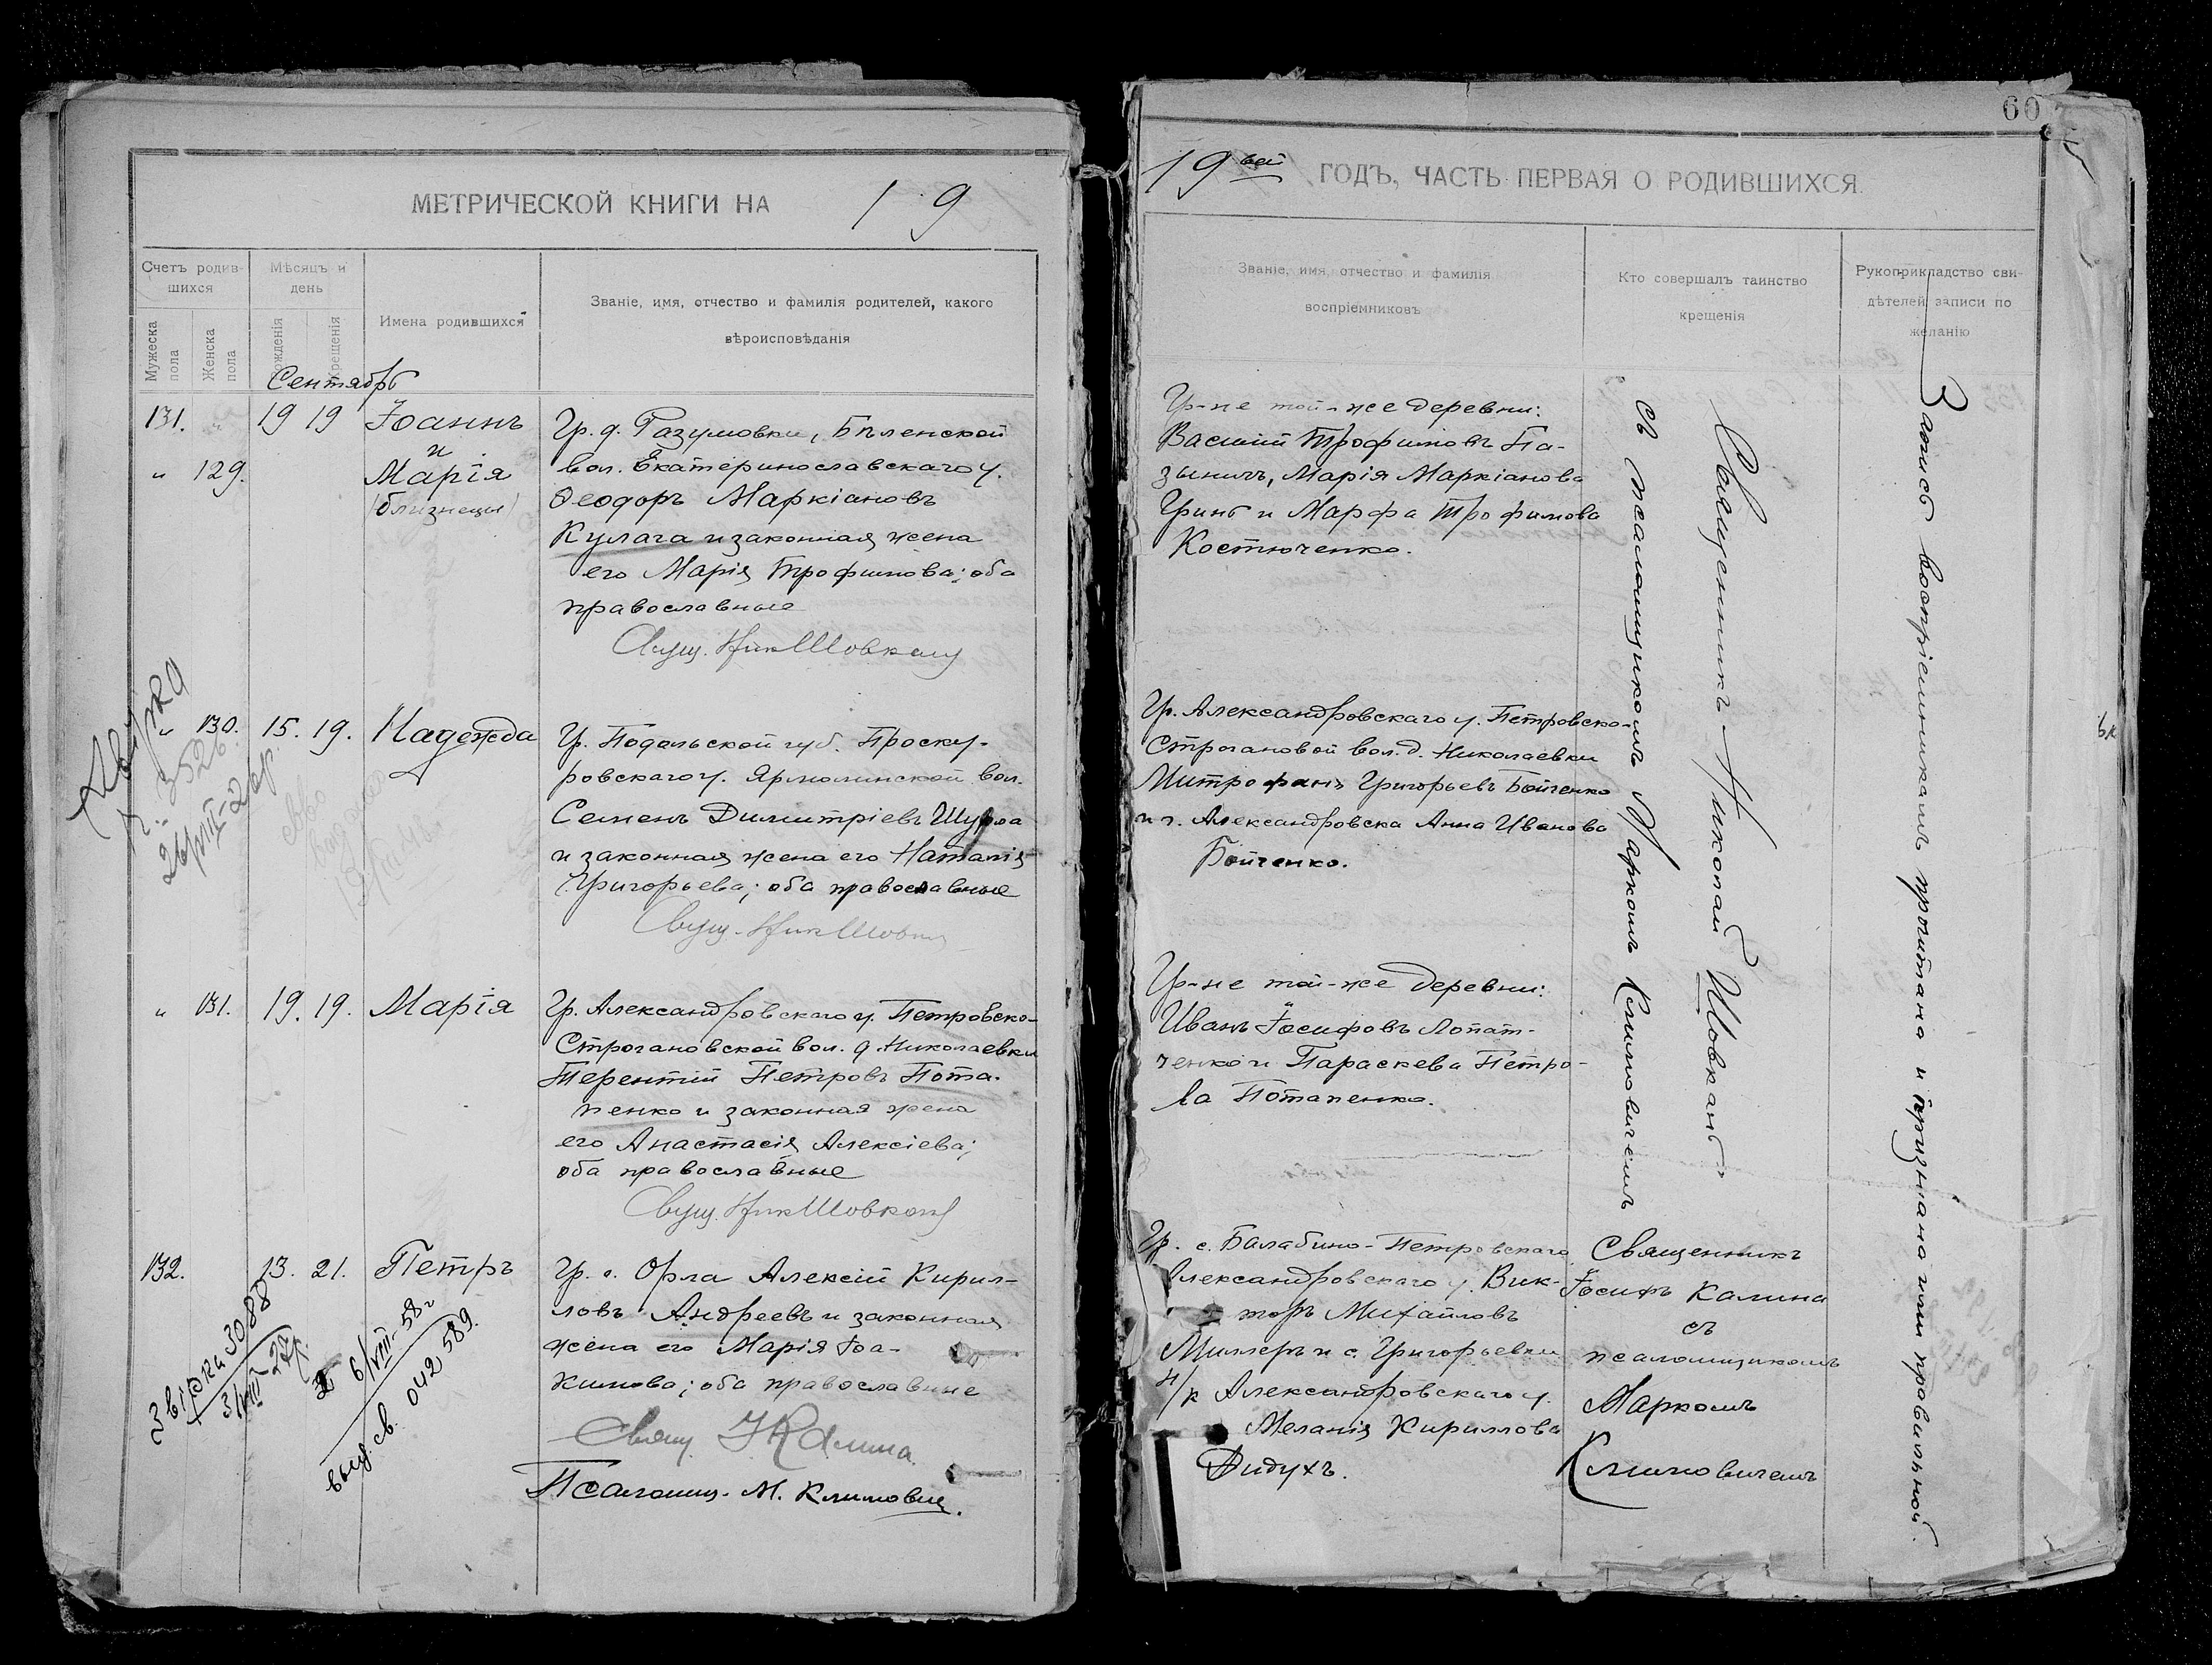 МЕТРИЧЕСКОЙ КНИГИ НА 1 9
Счетъ родив-
шихся
Мѣсяцъ и
день
Имена родившихся
Званіе, имя, отчество и фамилія родителей, какого
вѣроисповѣданія
Мужеска
пола
Женска
пола
рожденія
крещенія
Сентябрь
131. 19 19 Іоаннъ
и
" 129. Марія
(близнецы)
Гр. д. Разумовки, Бѣленской
вол. Екатеринославскаго у.
Ѳеодоръ Маркіановъ
Кулага и законная жена
его Марія Трофимова; оба
православные
Свящ. Ник Шовкань
" 130. 15. 19. Надежда
Гр. Подольской губ. Проску-
ровскаго у. Ярмолинской вол.
Семенъ Димитріевъ
и законная жена его Наталія
Григорьева; оба православные
Свящ. Ник Шовкань
" 131. 19. 19. Марія
Гр. Александровскаго у. Петровско-
Строгановской вол. д. Николаевки
Терентій Петровъ Пота-
пенко и законная жена
его Анастасія Алексіева;
оба православные
Свящ. Ник Шовкань
132. 13. 21. Петръ
Гр. г. Орла Алексій Кирил-
ловъ Андреевъ и законная
жена его Марія Іоа-
кимова; оба православные
Свящ. І. Калина.
Псаломщ. М. Климович.
3526.
26/VIII-2
Звірка 3088
3/VIII 27р.
6/VIII-58 г
выд. св. 042589.
60
19 ГОДЪ, ЧАСТЬ ПЕРВАЯ О РОДИВШИХСЯ.
Званіе, имя, отчество и фамилія
воспріемниковъ
Кто совершалъ таинство
крещенія
Рукоприкладство сви-
дѣтелей записи по
желанію
Гр-не той-же деревни:
Василій Трофимовъ Па-
зыничъ, Марія Маркіанова
Гринь и Марфа Трофимова
Костюченко.
Гр. Александровскаго у. Петровско-
Строгановой вол. д. Николаевки
Митрофанъ Григорьевъ Бойченко
и г. Александровска Анна Иванова
Бойченко.
Гр-не той-же деревни:
Иванъ Іосифовъ Лопат-
ченко и Параскева Петро-
ва Потапенко.
Гр. с. Балабино-Петровскаго
Александровскаго у. Вик-
торъ Михайловъ
Миллеръ и с. Григорьевки
Александровскаго у.
Меланія Кириллова
Дидухъ.
Священникъ Николай Шовкань
съ псаломщикомъ Маркомъ Климовичемъ
Священникъ
Іосифъ Калина
съ
псаломщикомъ
Маркомъ
Климовичемъ
Запись воспріемникамъ прочитана и признана ими правильной.